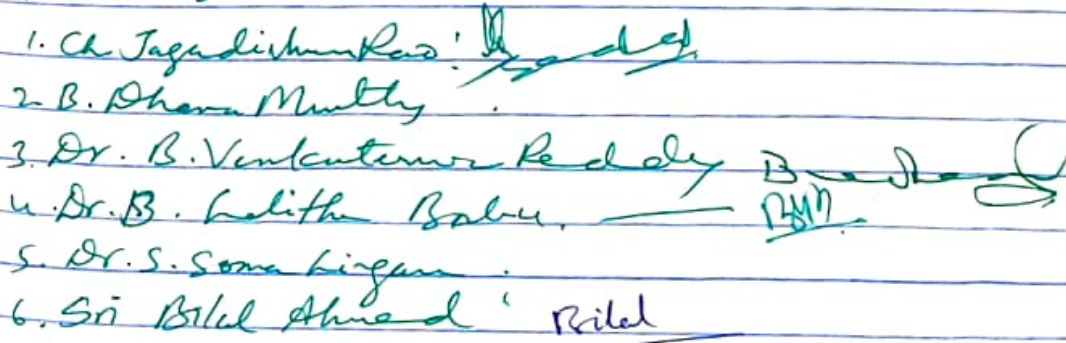 1. Ch Jagadishwar Rao
2. B. Dharma Murthy
3. Dr. B. Venkateswar Reddy
4. Dr. B. Lalitha Babu,
5. Dr. S. Soma Lingam
6. Sri Bilal Ahmed Bilal